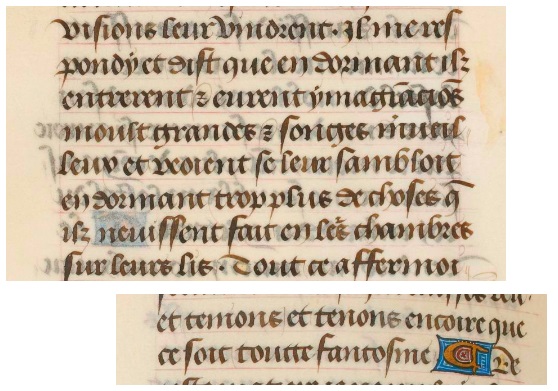 visions leur vindrent. Il me res
pondy et dist que en dormant ilz
entrerent et eurent ymagiãciõs
moult grandes et songes m̃ueil
leux et veoient se leur sambloit
en dormant trop plus de choses q̃
ilz neuissent fait en le&#x27;s chambres
sur leurs lis. Tout ce affermoi
et cemons et tenons encoire que
ce soit toutte fantosme